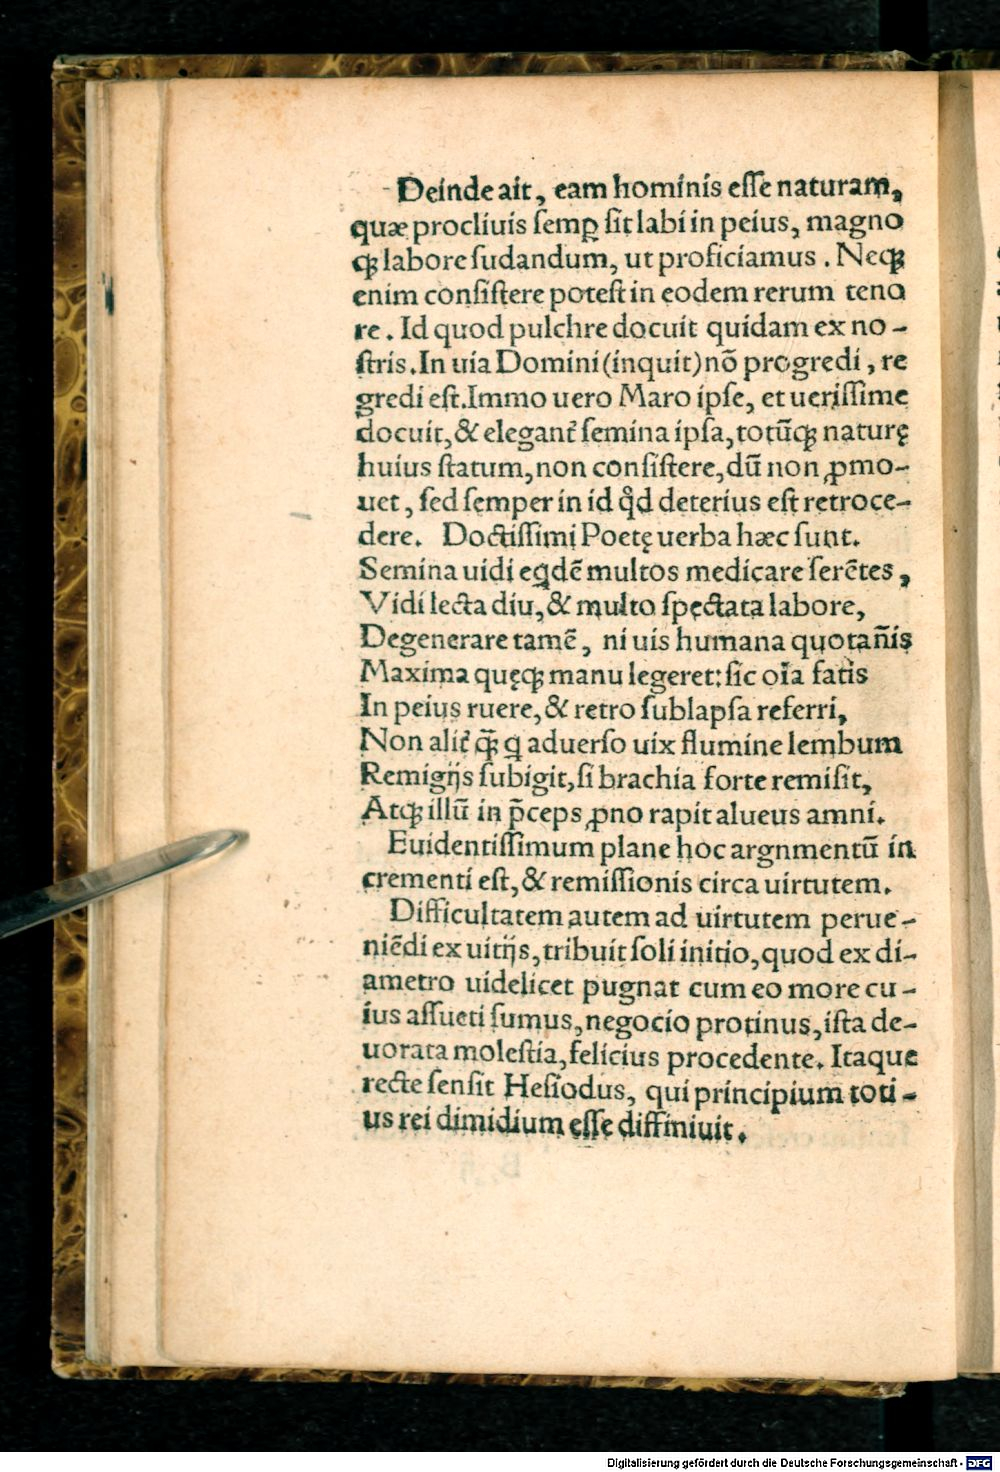 Deinde ait, eam hominis esse naturam,
quæ procliuis semꝑ sit labi in peius, magno
qꝫ labore sudandum, ut proficiamus. Neqꝫ
enim consistere potest in eodem rerum teno
re. Id quod pulchre docuit quidam ex no-
stris. In uia Domini (inquit) nō progredi, re
gredi est. Immo uero Maro ipse, et uerissime
docuit, & elegant̃ semina ipsa, totūqꝫ naturę
huius statum, non consistere, dū non ꝓmo-
uet, sed semper in id qd̛ deterius est retroce-
dere. Doctissimi Poetę uerba hæc sunt.
Semina uidi eqdē multos medicare serētes,
Vidi lecta diu, & multo spectata labore,
Degenerare tamē, ni uis humana quotañis
Maxima quęqꝫ manu legeret: sic oīa fatis
In peius ruere, & retro sublapsa referri,
Non alit̃ qꝫ̄ q aduerso uix flumine lembum
Remigijs subigit, si brachia forte remisit,
Atqꝫ illū in p̄ceps ꝓno rapit alueus amni.
Euidentissimum plane hoc argnmentū in
crementi est, & remissionis circa uirtutem.
Difficultatem autem ad uirtutem perue-
niēdi ex uitijs, tribuit soli initio, quod ex di-
ametro uidelicet pugnat cum eo more cu-
ius assueti sumus, negocio protinus, ista de-
uorata molestia, felicius procedente. Itaque
recte sensit Hesiodus, qui principium toti-
us rei dimidium esse diffiniuit.
Digitalisierung gefördert durch die Deutsche Forschungsgemeinschaft - DFG